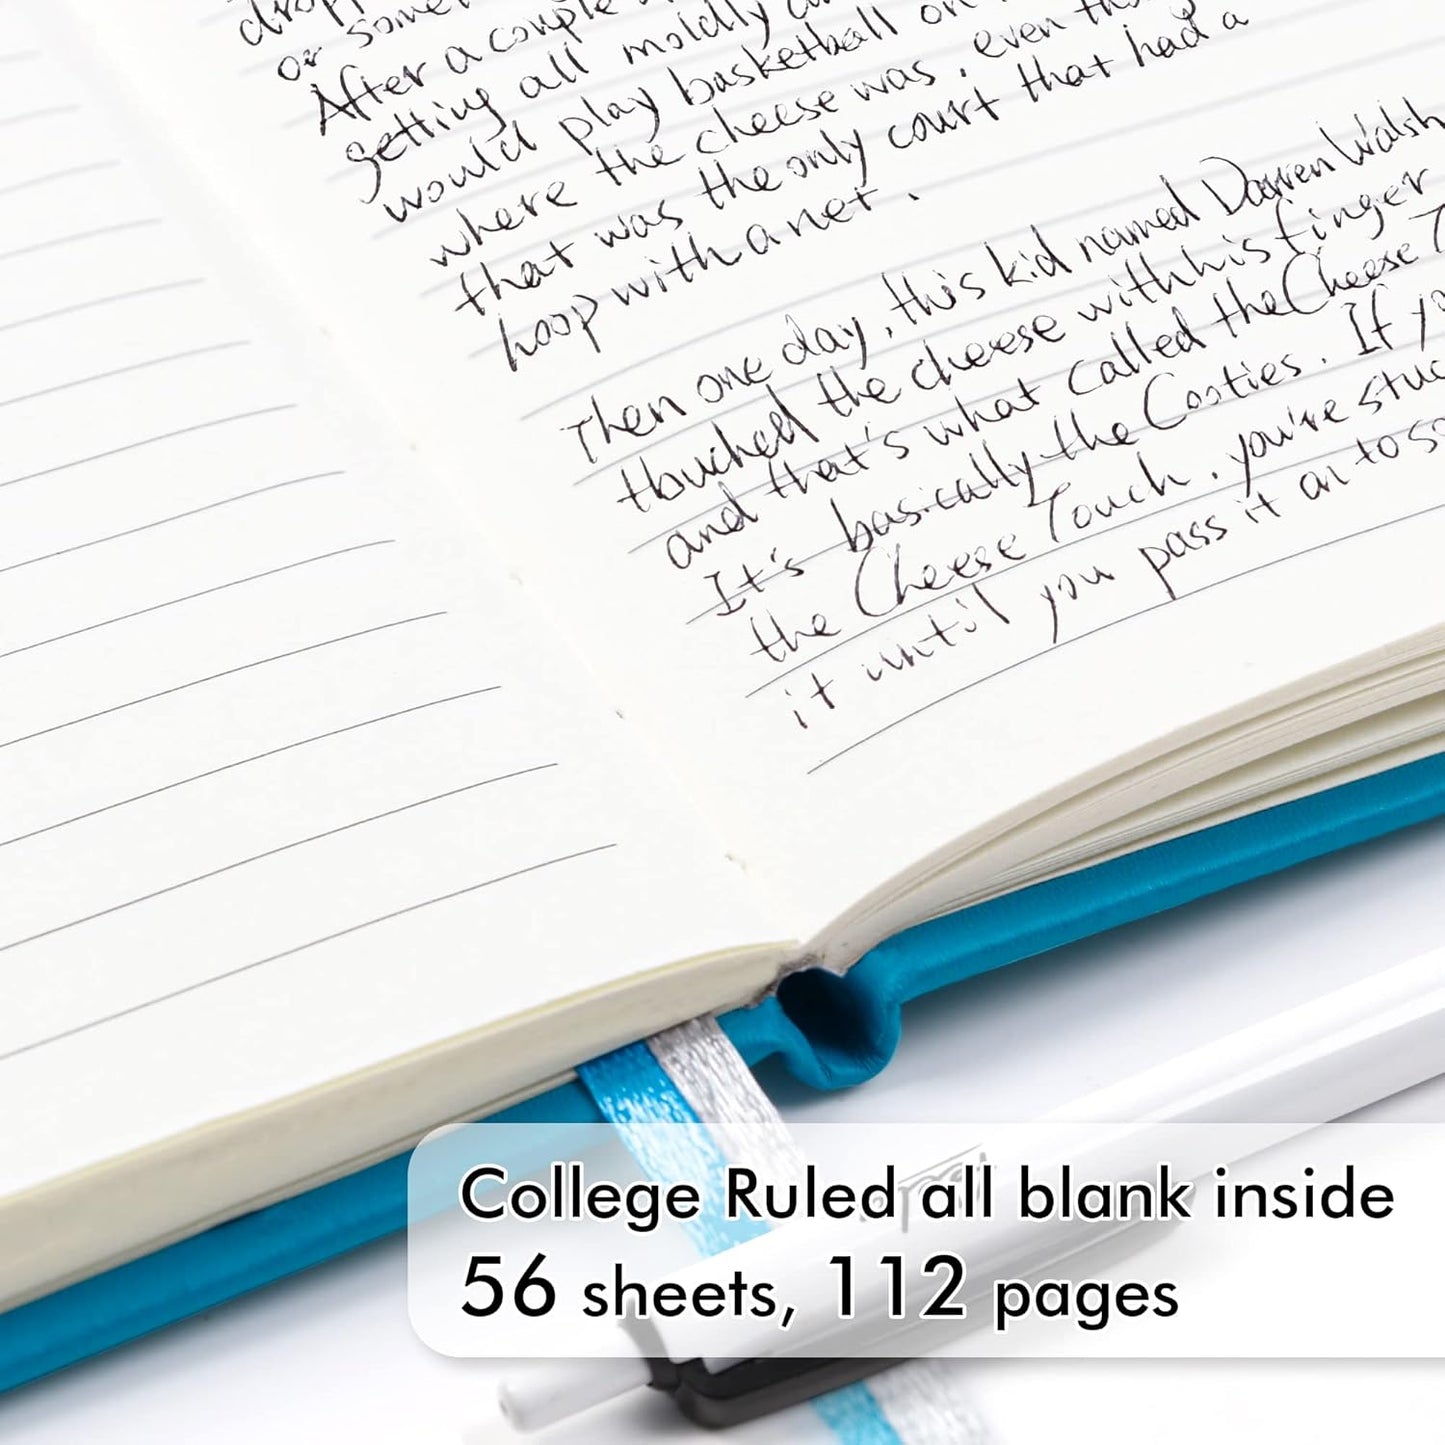 dropp
or some
After a couple
getting all moldly a
would play basketball on
where the cheese was, even tho
that was the only court that had a
hoop with a net.
Then one day, this kid named Darren Walsh
touched the cheese with his finger
and that's what called the Cheese T
It's basically the Cooties. If yo
the Cheese Touch. you're stuc
it until you pass it on to so
College Ruled all blank inside
56 sheets, 112 pages